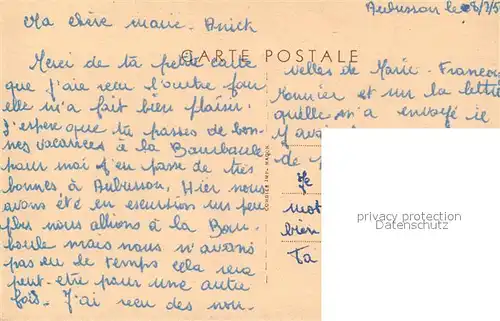 Aubusson le 8/7/5
Ma chère marie-Anick
CARTE POSTALE
Merci de ta petite carte
que j'aie recu l'autre jour
elle m'a fait bien plaisir.
J'espère que tu passes de bon-
nes vacances à la Bourboule
pour moi j'en passe de très
bonnes à Aubusson. Hier nous
avons été en escursion un peu
plus nous allions à la Bour-
boule mais nous n'avons
pas eu le temps cela sera
peut-etre pour une autre
fois. J'ai recu des nou-
velles de Marie-Franco
et sur la lettre
qu'elle m'a envoyé ie
J'avai
de
Je
mot
bien
Ta
privacy protection
Datenschutz